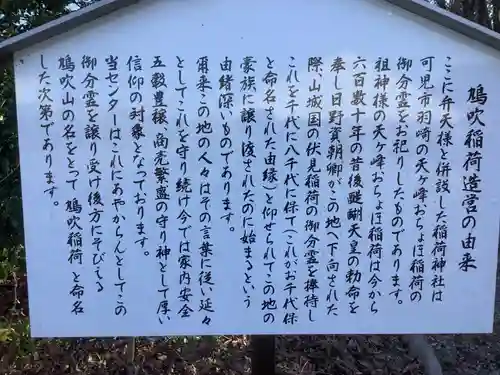 鳩吹稲荷造宮の由来
ここに弁天様と併設した稲荷神社は
可児市羽崎の天ケ峰おちょぼ稲荷の
御分霊をお祀りしたものであります。
祖神様の天ケ峰おちょぼ稲荷は今から
六百数十年の昔後醍醐天皇の勅命を
奉し日野資朝卿がこの地へ下向された
際、山城国の伏見稲荷の御分霊を捧持し
これを千代に八千代に保て(これがお千代保
と命名された由縁)と仰せられてこの地の
豪族に譲り渡されたのに始まるという
由緒深いものであります。
爾来この地の人々はその言葉に従い延々
としてこれを守り続け今では家内安全
五穀豊穣、商売繁盛の守り神として厚い
信仰の対象となっております。
当センターはこれにあやからんとしてこの
御分霊を譲り受け後方にそびえる
鳩吹山の名をとって鳩吹稲荷と命名
した次第であります。